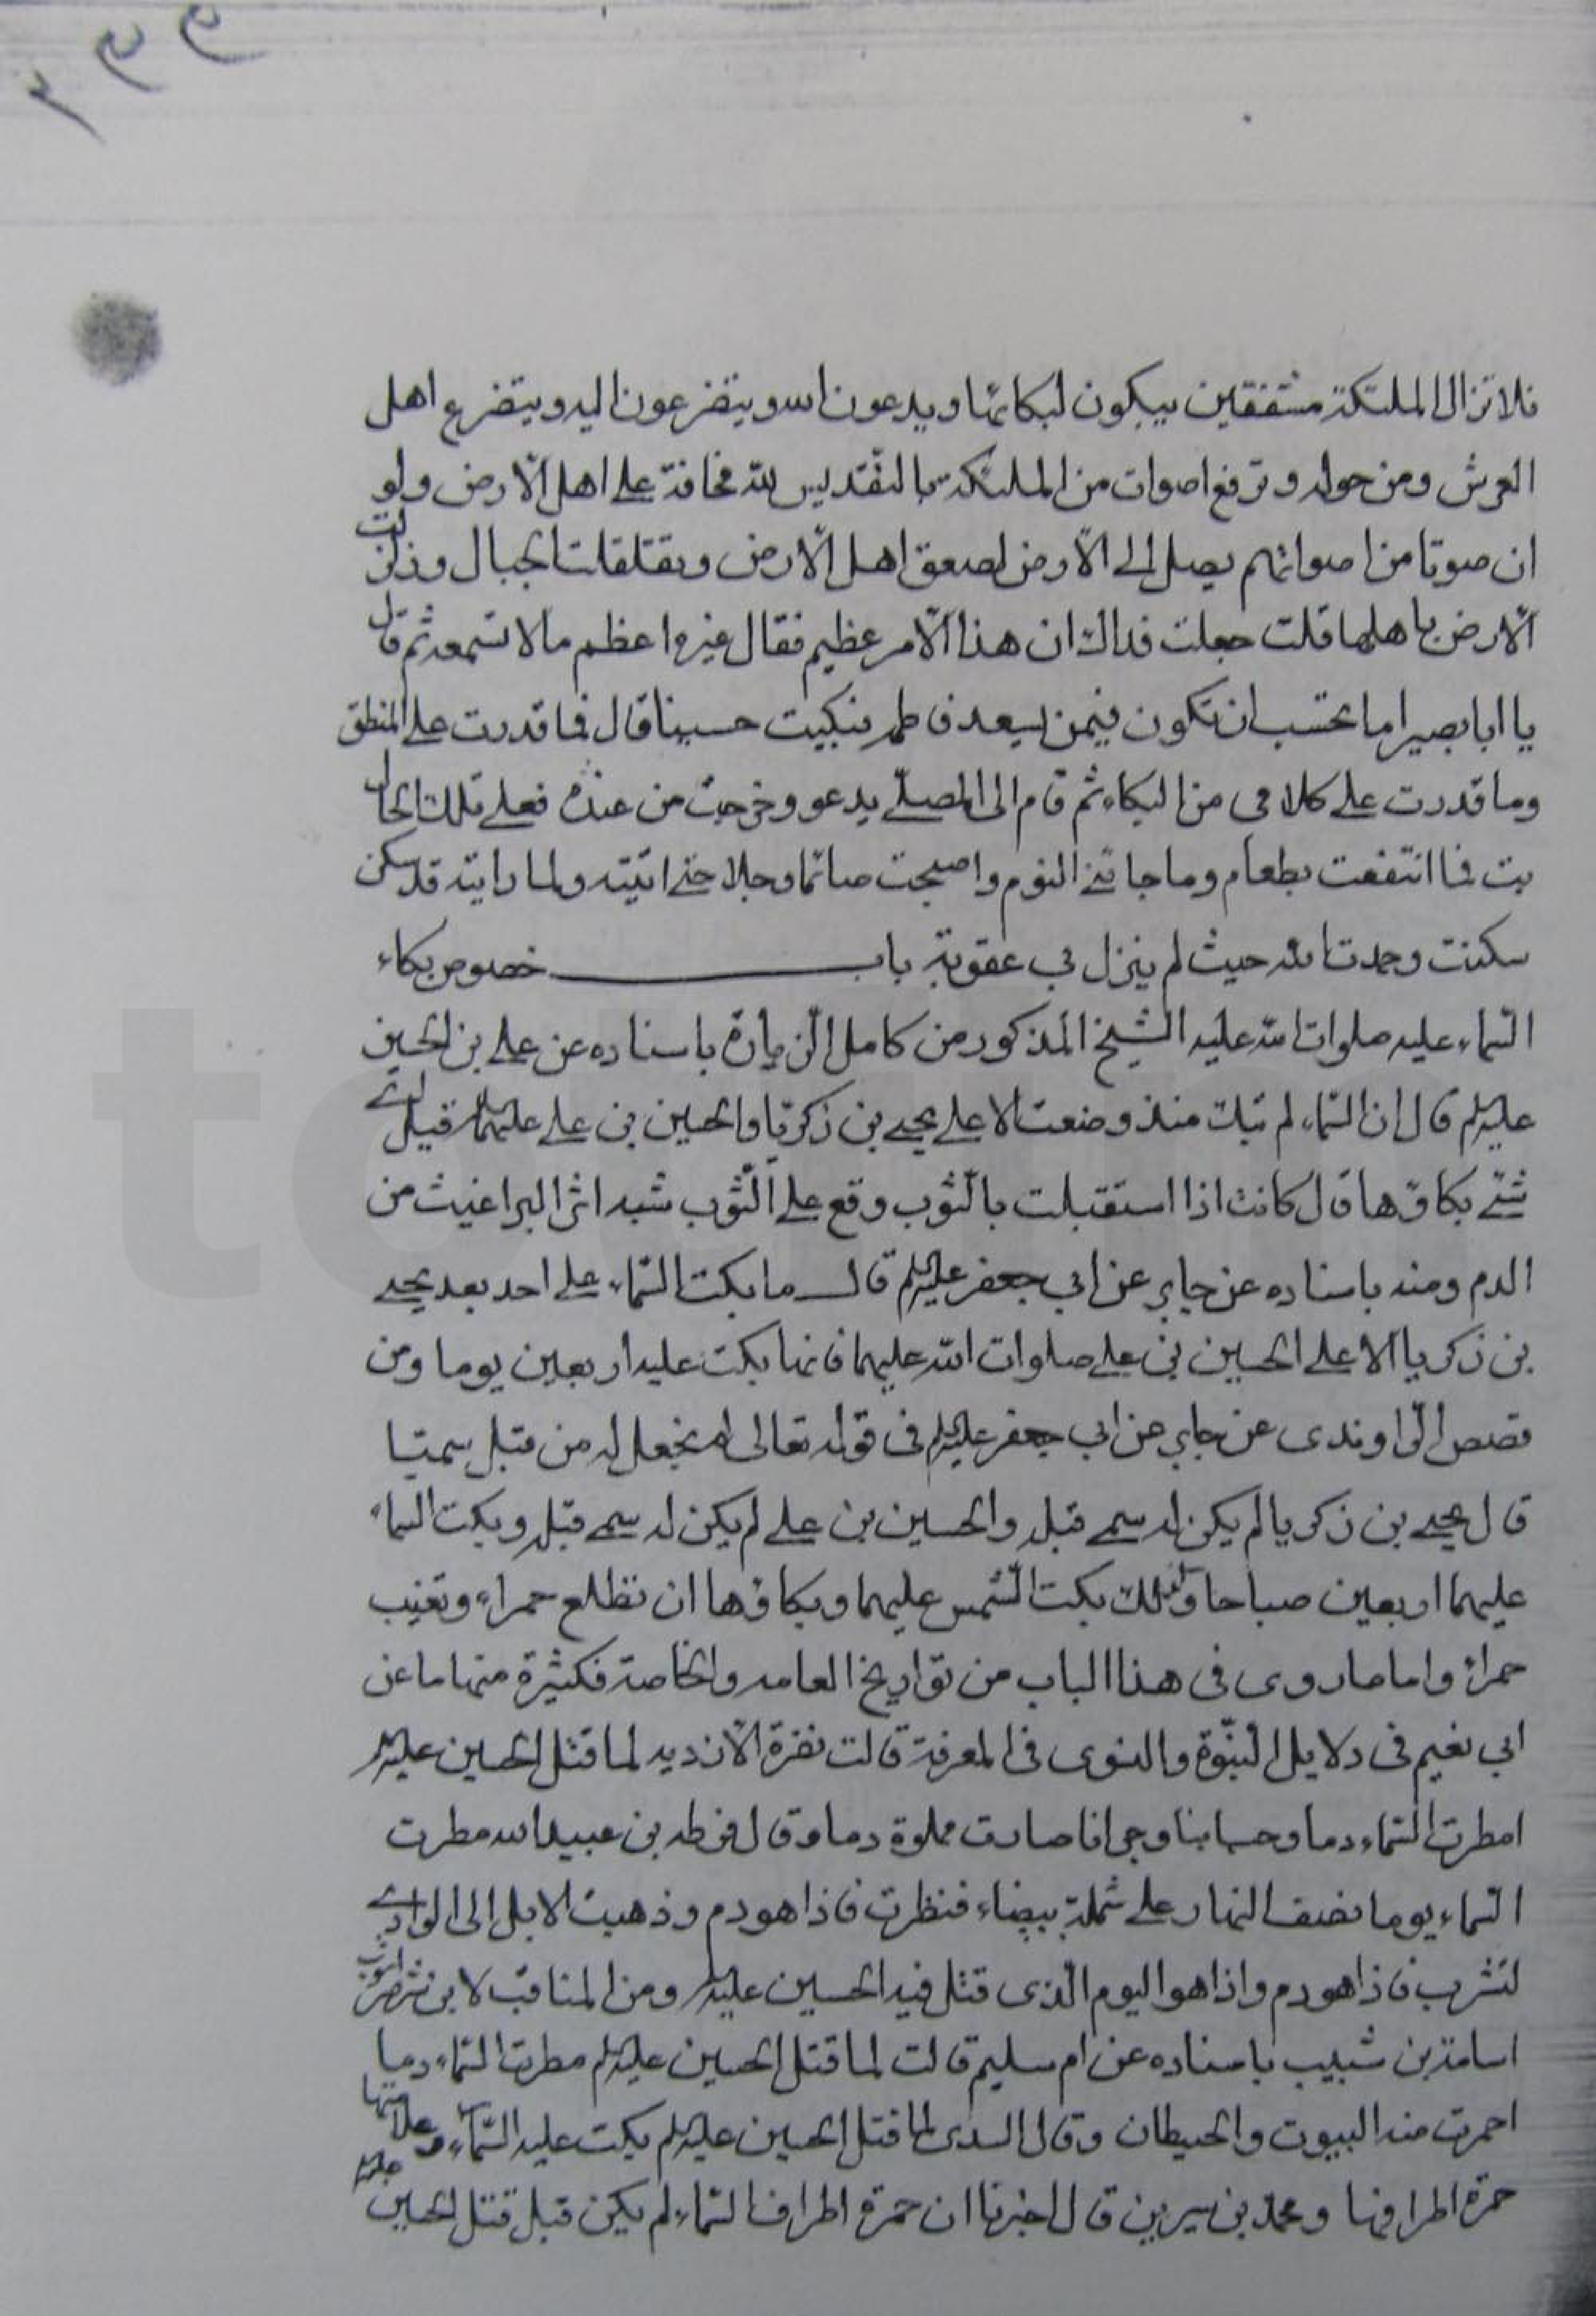 فلا تزال الملئكة مشفقين يبكون لبكائها ويدعون الله ويتضرعون اليه ويتضرع اهل
العرش ومن حوله وترفع اصوات من الملئكة بالتقديس لله مخافة على اهل الارض ولو
ان صوتا من اصواتهم يصل الى الارض لصعق اهل الارض وتقلقلت الجبال وزلزلت
الارض باهلها قلت جعلت فداك ان هذا الامر عظيم فقال غيره اعظم مالا تسمعه ثم قال
يا ابا بصير اما تحتسب ان تكون فيمن يسعد فاطمه فبكيت حسينا قال فما قدرت على المنطق
وما قدرت على كلامى من البكاء ثم قام الى المصلى يدعو وخرجت من عنده فعلى تلك الحال
بت فما انتفعت بطعام وما جائنى النوم واصبحت صائما وجلا حتى اتيته ولما رايته قد سكن
سكنت وحمدت الله حيث لم ينزل بى عقوبة باب خصوص بكاء
السماء عليه صلوات الله عليه الشيخ المذكور من كامل الزيارة باسناده عن على بن الحسين
عليه السلم قال ان السماء لم تبك منذ وضعت الا على يحيى بن زكريا والحسين بن على عليهما قيل اى
شئ بكاؤها قال كانت اذا استقبلت بالثوب وقع على الثوب شبه اثر البراغيث من
الدم ومنه باسناده عن جابر عن ابى جعفر عليه السلم قال ما بكت السماء على احد بعد يحيى
بن زكريا الا على الحسين بن على صلوات الله عليهما فانها بكت عليه اربعين يوما ومن
قصص الراوندى عن جابر عن ابى جعفر عليه السلم فى قوله تعالى لم نجعل له من قبل سميا
قال يحيى بن زكريا لم يكن له سمى قبله والحسين بن على لم يكن له سمى قبله وبكت السماء
عليهما اربعين صباحا وكذلك بكت الشمس عليهما وبكاؤها ان تطلع حمراء وتغيب
حمراء واما ما روى فى هذا الباب من تواريخ العامه والخاصة فكثيرة منها ما عن
ابى نعيم فى دلايل النبوة والنسوى فى المعرفة قالت نضرة الازديه لما قتل الحسين عليه
امطرت السماء دما وحبابنا وجرانا صارت مملوة دما وقال قرظه بن عبيد الله مطرت
السماء يوما نصف النهار على شملة بيضاء فنظرت فاذا هو دم وذهبت الابل الى الوادى
لتشرب فاذا هو دم واذا هو اليوم الذى قتل فيه الحسين عليه ومن المناقب لابن شهراشوب
اسامة بن شبيب باسناده عن ام سليم قالت لما قتل الحسين عليه السلم مطرت السماء دما
احمرت منه البيوت والحيطان وقال السدى لما قتل الحسين عليه السلم بكت عليه السماء وعلامتها
حمرة اطرافها ومحمد بن سيرين قال اخبرنا ان حمرة اطراف السماء لم يكن قبل قتل الحسين عليه